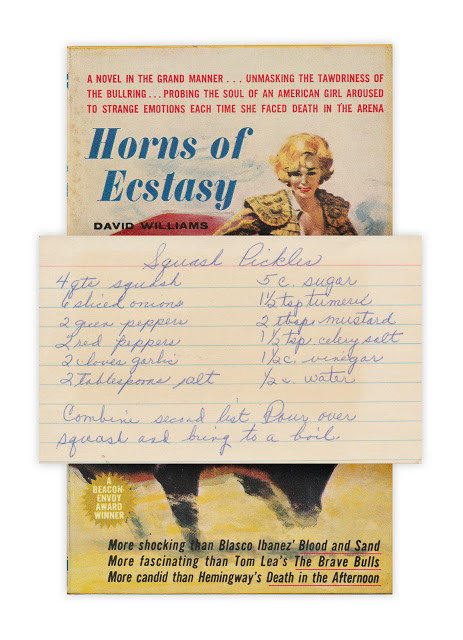 A NOVEL IN THE GRAND MANNER . . . UNMASKING THE TAWDRINESS OF
THE BULLRING . . . PROBING THE SOUL OF AN AMERICAN GIRL AROUSED
TO STRANGE EMOTIONS EACH TIME SHE FACED DEATH IN THE ARENA
Horns of
Ecstasy
DAVID WILLIAMS
Squash Pickles
4 qts squash
6 sliced onions
2 green peppers
2 red peppers
2 cloves garlic
2 tablespoons salt
5 c. sugar
1½ tsp tumeric
2 tbsp. mustard
1½ tsp. celery salt
1½ c. vinegar
½ c. water
Combine second list Pour over
squash and bring to a boil.
A
BEACON-
ENVOY
AWARD
WINNER
More shocking than Blasco Ibanez' Blood and Sand
More fascinating than Tom Lea's The Brave Bulls
More candid than Hemingway's Death in the Afternoon